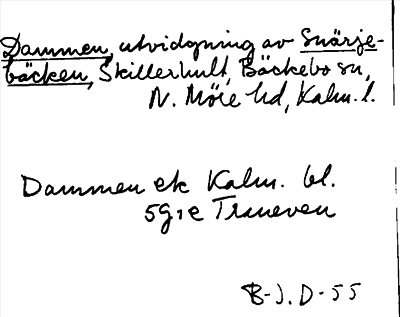 Dammen, utvidgning av Snärje-
bäcken, Skillerhult, Bäckebo sn,
N. Möre hd, Kalm. l.
Dammen ek Kalm. bl.
5G1e Traneven
B-J.D-55